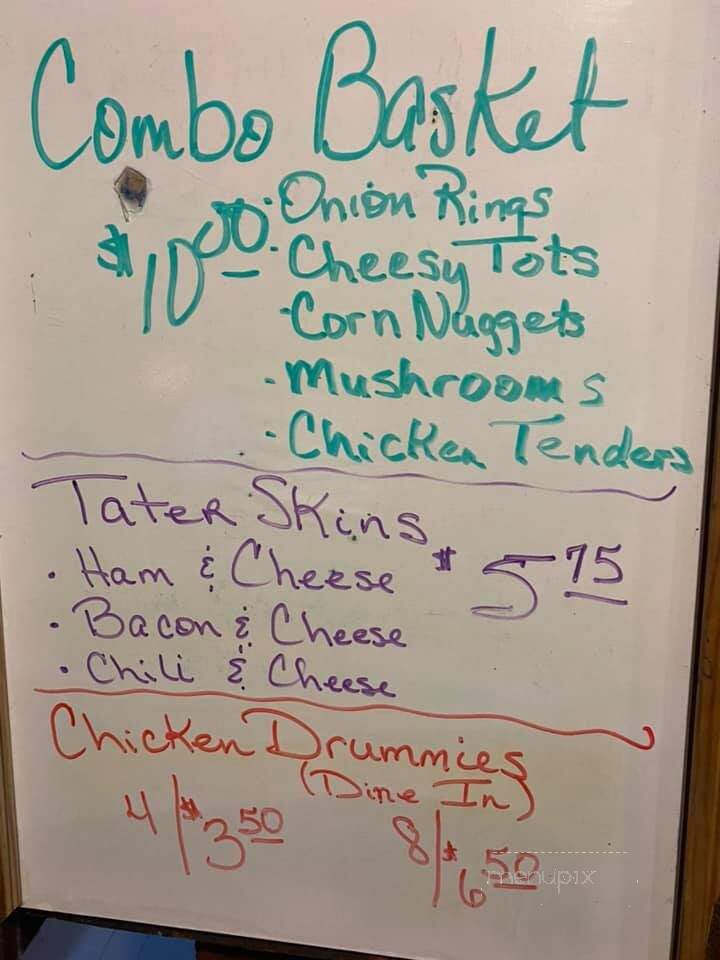 Combo Basket
$10.00
· Onion Rings
· Cheesy Tots
· Corn Nuggets
· Mushrooms
· Chicken Tenders
Tater Skins
$5.75
· Ham & Cheese
· Bacon & Cheese
· Chili & Cheese
Chicken Drummies
(Dine In)
4/$3.50 8/$6.50
menupix